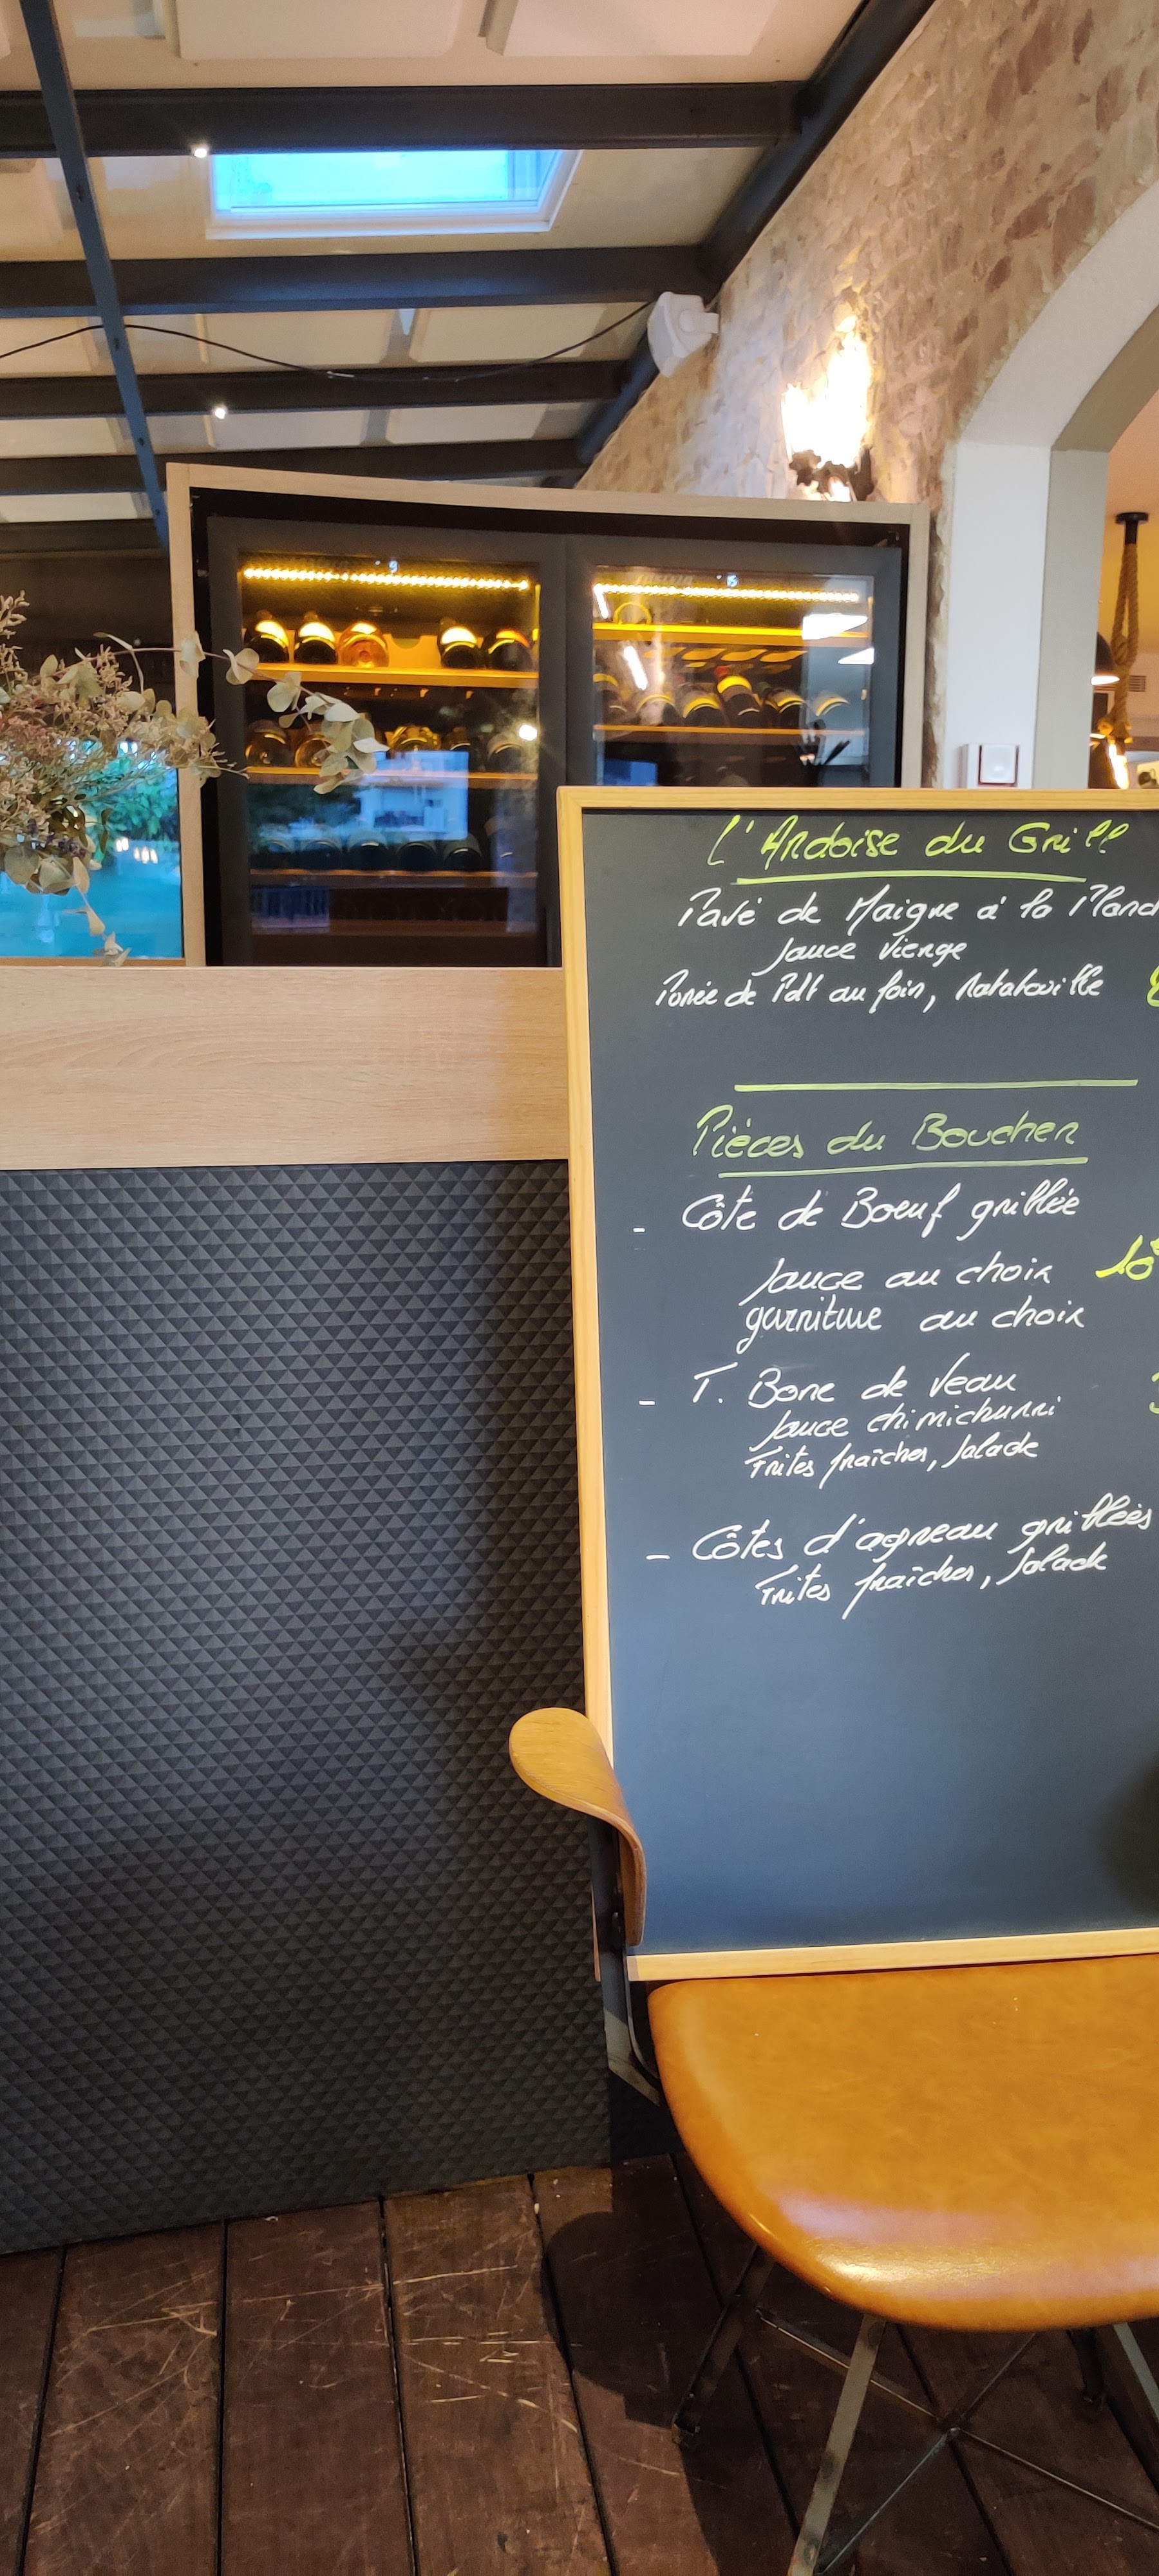 L'Ardoise du Grill
Pavé de Maigre à la Planch
Sauce Vierge
Purée de Pdt au foin, Ratatouille
Pièces du Boucher
- Côte de Boeuf grillée
Sauce au choix 10
garniture au choix
- T. Bone de Veau
Sauce chimichurri
Frites fraîches, Salade
- Côtes d'agneau grillées
Frites fraîches, Salade